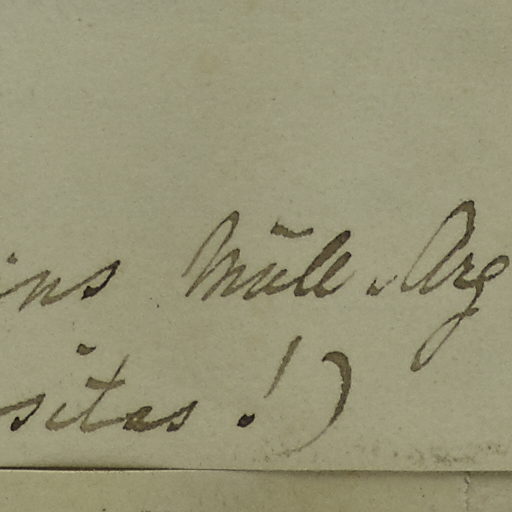 ins Müll. Arg
sitas!)